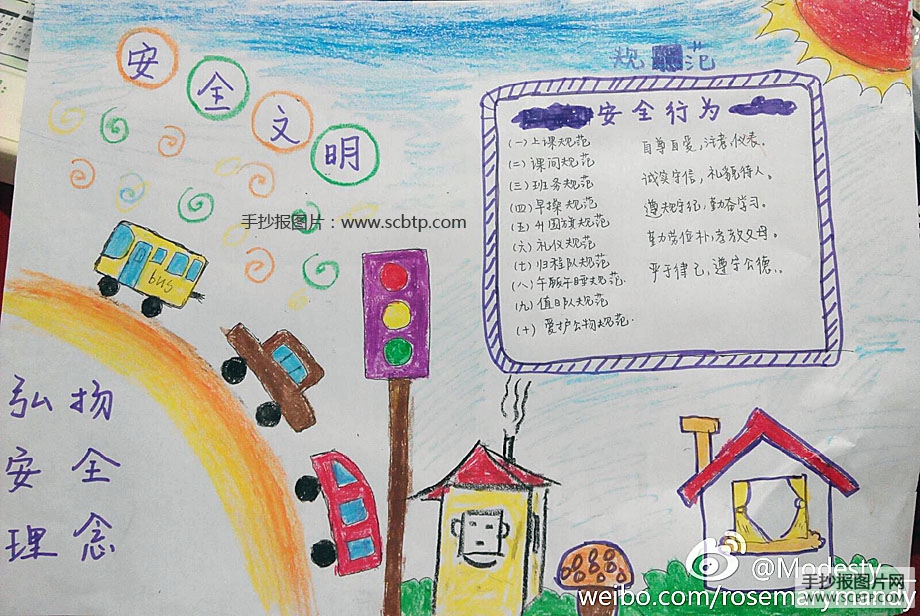 安全文明
规 范
安全行为
(一)上课规范
(二)课间规范
(三)班务规范
(四)早操规范
(五)升国旗规范
(六)礼仪规范
(七)归程队规范
(八)午餐午睡规范.
(九)值日队规范
(十)爱护公物规范.
自尊自爱,注者仪表.
诚实守信,礼貌待人。
遵规守纪,勤奋学习。
勤劳俭朴,孝敬父母。
严于律己,遵守公德.
手抄报图片:www.scbtp.com
BUS
弘扬
安全
理念
@Modesty
weibo.com/roseman
手抄报图片网
WWW.SCBTP.COM